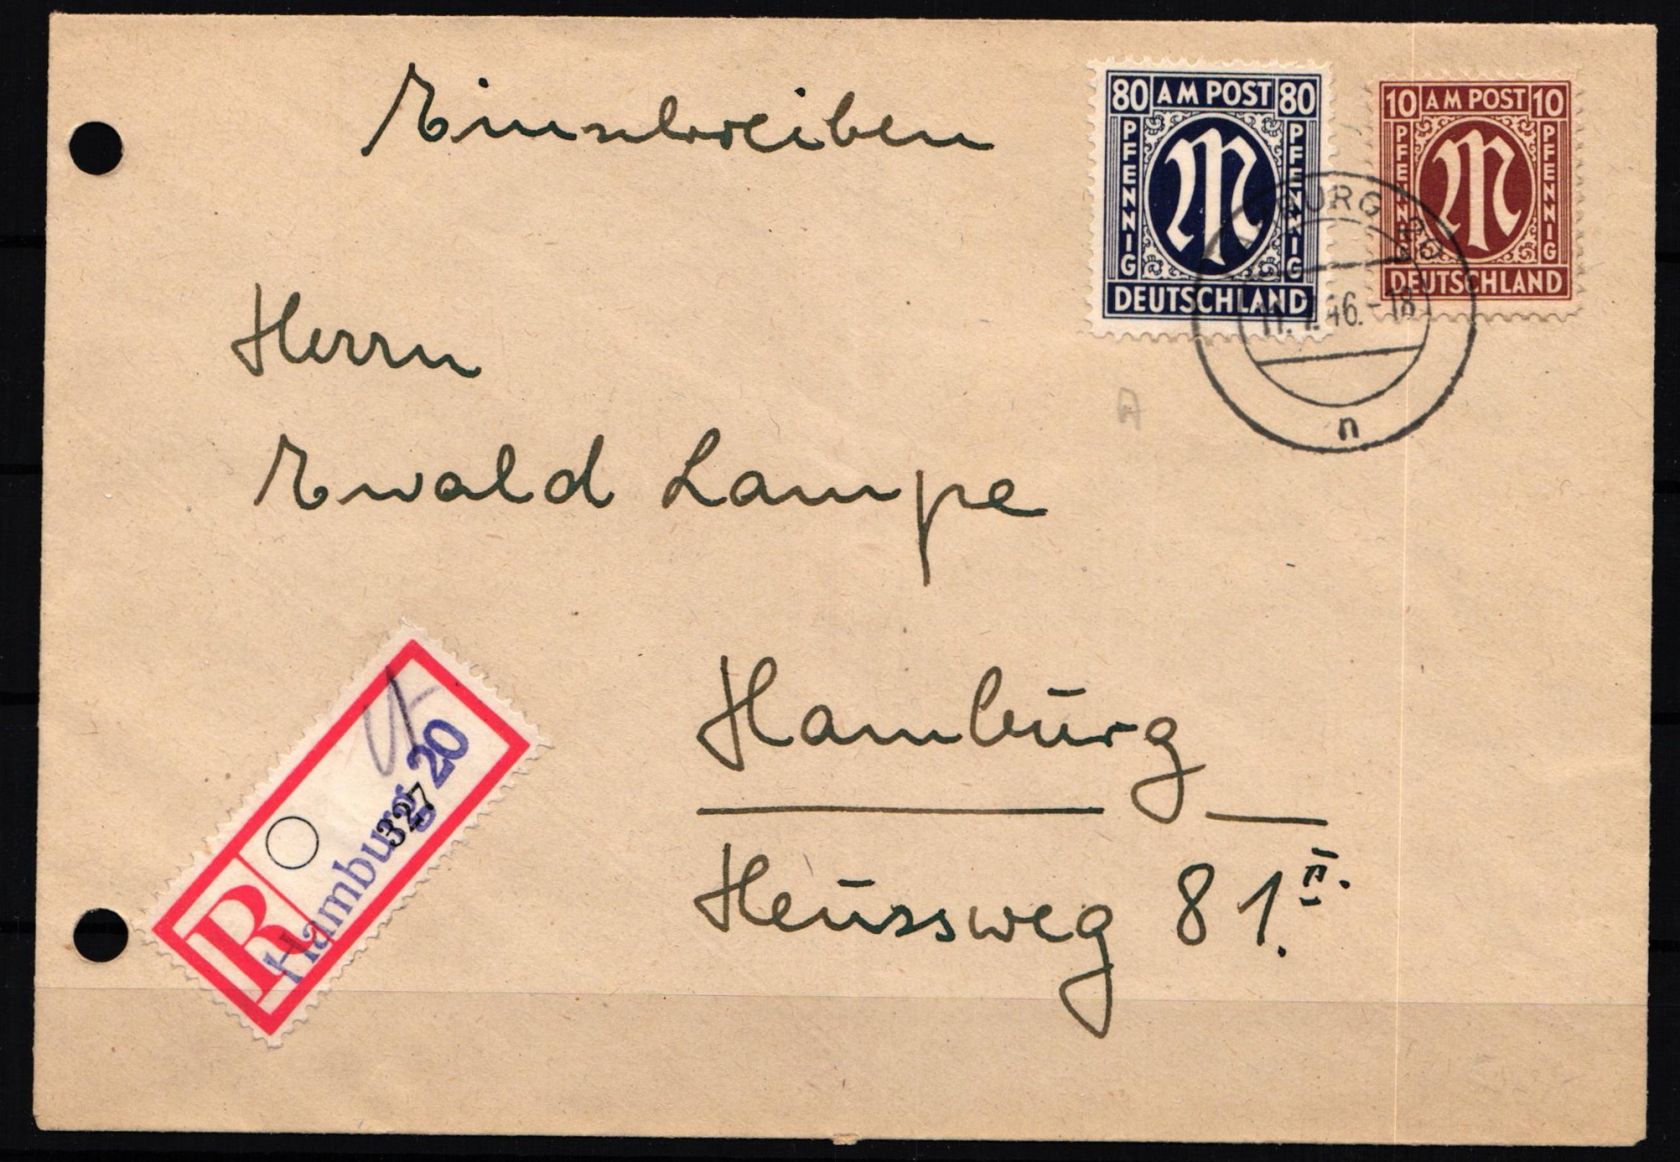 Einschreiben
80 AM POST 80
PFENNIG
PFENNIG
DEUTSCHLAND
10 AM POST 10
PFENNIG
PFENNIG
DEUTSCHLAND
46.-18
n
Herrn
Ewald Lampe
R
Hamburg 20
327
Hamburg
Heussweg 81. II.